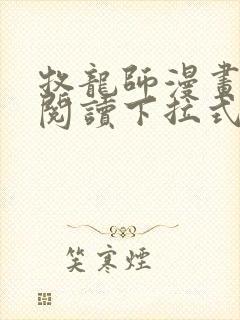 牧龍師漫畫
閱讀下拉式
笑寒煙